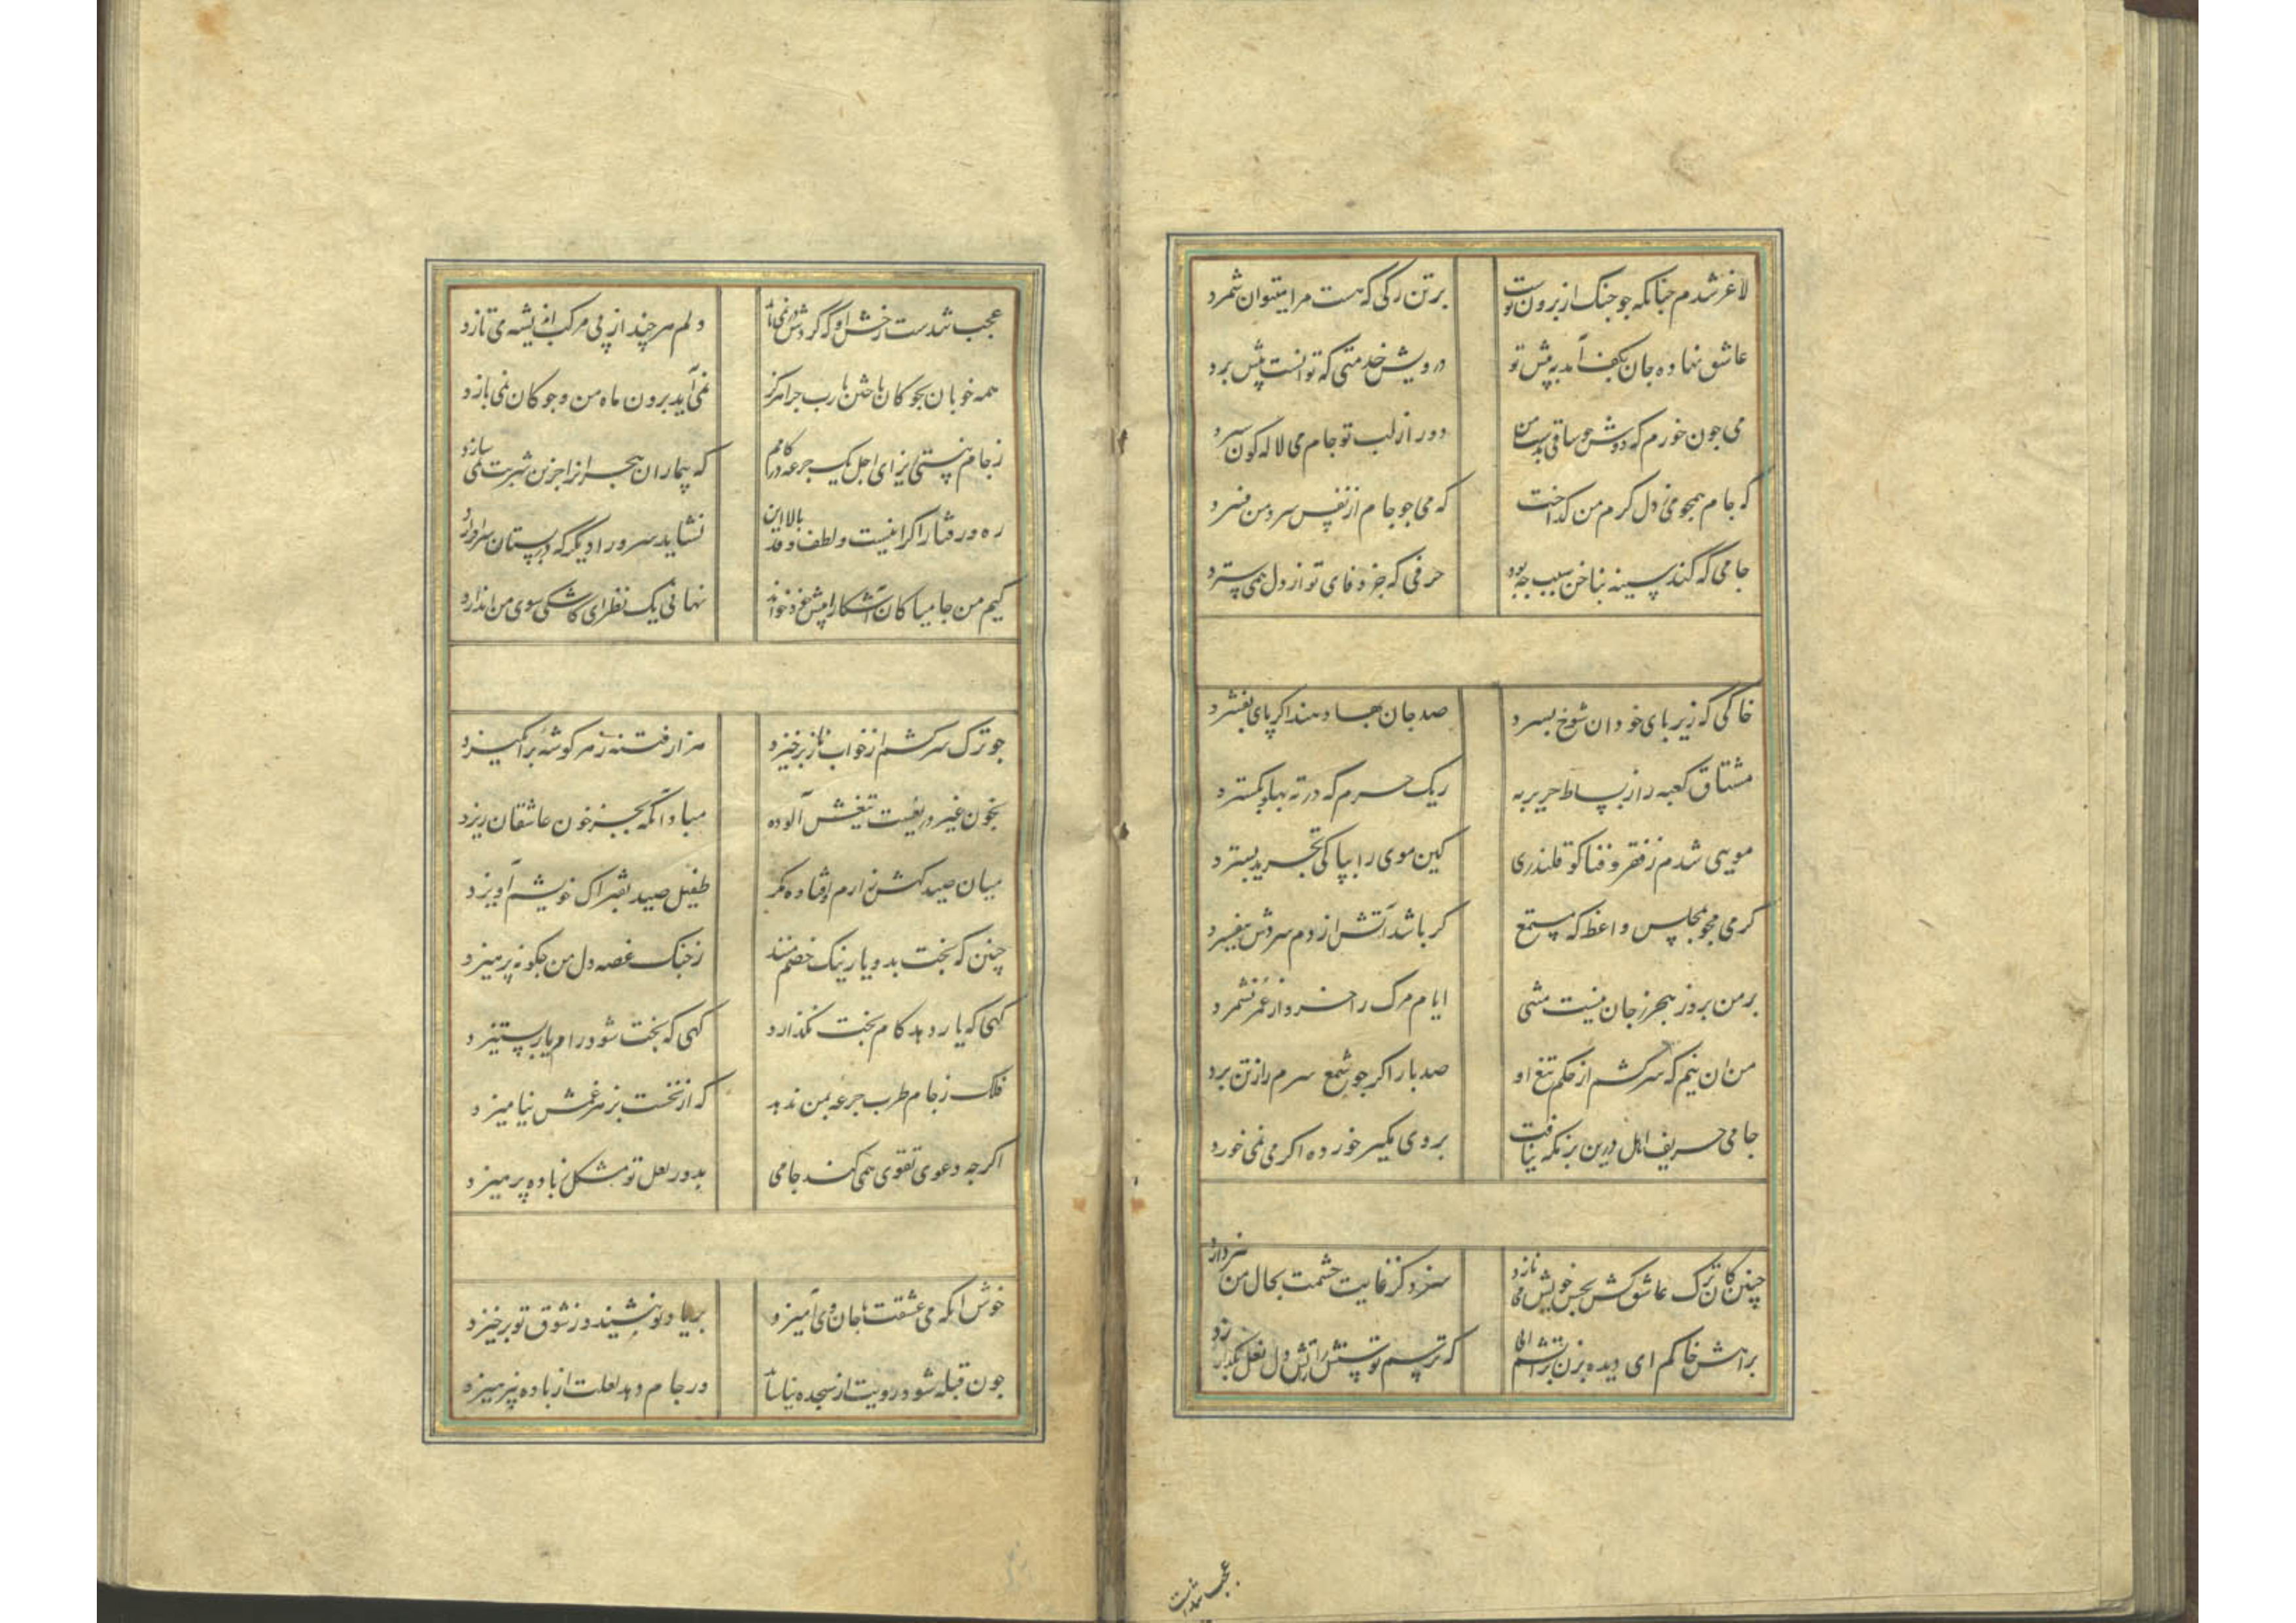 لاغر شدم چنانکه چو چنک از برون پوست بر تن رگی که هست مرا میتوان شمرد
عاشق نهاده جان بکف آمد به پیش تو درویش خدمتی که توانست پیش برد
می چون خورم که دوش چو ساقی بدست من دور از لب تو جام می لاله کون سپرد
که جام همچو می ز دل کرم من کداخت که می چو جام از نفس سرد من فسرد
جامی که کند سینه بناخن سبب چه بود حرفی که جز وفای تو از دل همی سترد
خاکی که زیر پای خود آن شوخ بسپرد صد جان بها دهند اکر پای بفشرد
مشتاق کعبه را ز بساط حریر به ریک حرم که در ته پهلو بکسترد
مویی شدم ز فقر و فنا کو قلندری کین موی را بپاکی تجرید بسترد
کرمی مجو بمجلس واعظ که مستمع کر باشد آتش از دم سردش بیفسرد
بر من بروز هجر ز جان نیست منتی ایام مرک را خرد از عمر نشمرد
من آن نیم که سر کشم از حکم تیغ او صد بار اکر چو شمع سرم را ز تن برد
جامی حریف اهل درین بزمکه نیافت بروی مکیر خورده اکر می نمی خورد
چنین کان ترک عاشق کش بحسن خویش می نازد سزد کز غایت حشمت بحال من نپردازد
براهش خاکم ای دیده بزن بر آتشم آبی که ترسم توسنش را آتش دل نعل بکدازد
عجب شدست
عجب شدست رخش او که کردش در نمی یابد دلم هر چند از پی مرکب اندیشه می تازد
همه خوبان بچوکان باختن یارب چرا هرکز نمی آید برون ماه من و چوکان نمی بازد
ز جام نیستی ریز ای اجل یک جرعه در کامم که بیماران هجران را جزین شربت نمی سازد
ره و رفتار اکر اینست و لطف و قد بالا این نشاید سرو را دیکر که در بستان سر افرازد
کیم من جامیا کان آشکارا پیش خود خواند نهانی یک نظر ای کاشکی سوی من اندازد
چو ترک سرکشم از خواب ناز برخیزد هزار فتنه ز هر کوشه برانکیزد
بخون غیر دریغست تیغش آلوده مباد آنکه بجز خون عاشقان ریزد
میان صید کهش زارم اوفتاده مکر طفیل صید بفتراک خویشم آویزد
چنین که بخت بد و یار نیک خصم منند ز جنک غصه دل من چکونه پرهیزد
کهی که یار دهد کام بخت نکذارد کهی که بخت شود رام یار بستیزد
فلک ز جام طرب جرعه بمن ندهد که از نخست بزهر غمش نیامیزد
اکر چه دعوی تقوی همی کند جامی بدور لعل تو مشکل ز باده پرهیزد
خوش آنکه می عشقت با جان وی آمیزد بر یاد تو بنشیند وز شوق تو برخیزد
چون قبله شود رویت از سجده نیاساید ور جام دهد لعلت از باده نپرهیزد